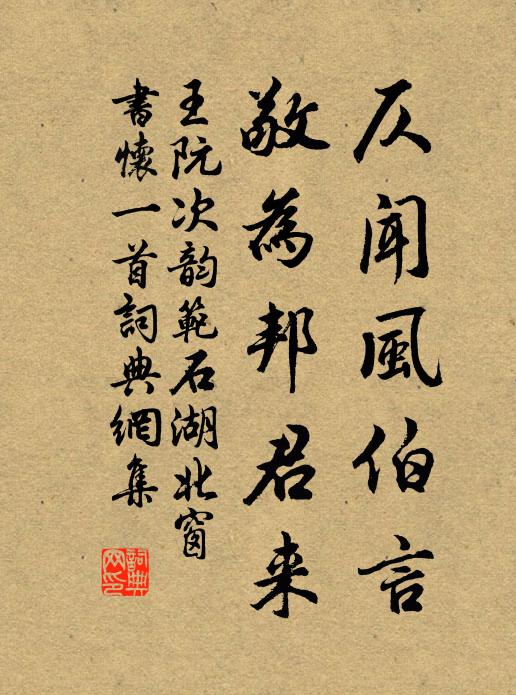 仄闻風伯言
敬為邦君来
王阮次韵範石湖北窗
書懷一首詞典網集
詞典网印